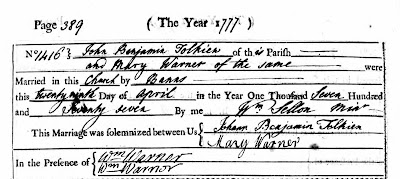 Page 389 ( The Year 1777. )
No 1416 } John Benjamin Tolkien of this Parish
and Mary Warner of the same were
Married in this Church by Banns
this twenty ninth Day of April in the Year One Thousand Seven Hundred
and Seventy seven By me Wm Sellon Minr
This Marriage was solemnized between Us { Johann Benjamin Tolkien
Mary Warner
In the Presence of { Wm Warner
Wm Warner